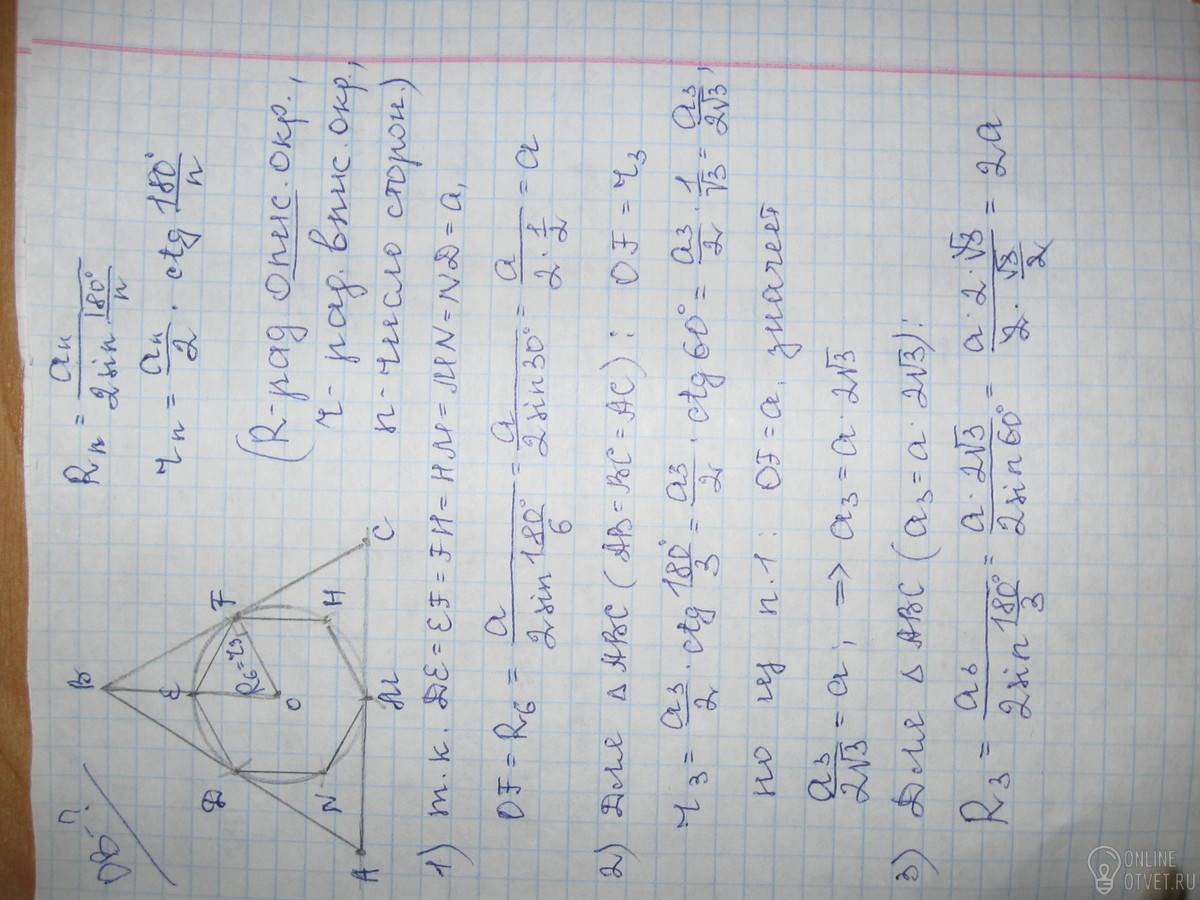 OB-?
B
E
F
D
R₆=r₃
O
N
H
A
M
C
Rₙ = aₙ / (2 sin 180°/n)
rₙ = aₙ/2 · ctg 180°/n
(R-рад опис. окр.,
r- рад. впис. окр.,
n-число сторон.)
1) т.к. DE = EF = FH = HM = MN = ND = a,
OF = R₆ = a / (2 sin 180°/6) = a / (2 sin 30°) = a / (2 · 1/2) = a
2) Для Δ ABC (AB = BC = AC) : OF = r₃
r₃ = a₃/2 · ctg 180°/3 = a₃/2 · ctg 60° = a₃/2 · 1/√3 = a₃/2√3 ,
но из п.1 : OF = a, значит
a₃/2√3 = a ; => a₃ = a · 2√3
3) Для Δ ABC (a₃ = a · 2√3) :
R₃ = a₃ / (2 sin 180°/3) = a · 2√3 / (2 sin 60°) = a · 2 · √3 / (2 · √3/2) = 2a
ONLINE
OTVET.RU